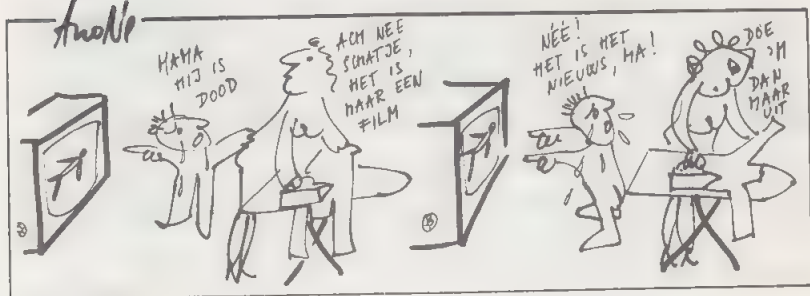 AnoNe
MAMA
HIJ IS
DOOD
ACH NEE
SCHATJE,
HET IS
MAAR EEN
FILM
NÉÉ!
HET IS HET
NIEUWS, MA!
DOE
'M
DAN
MAAR
UIT